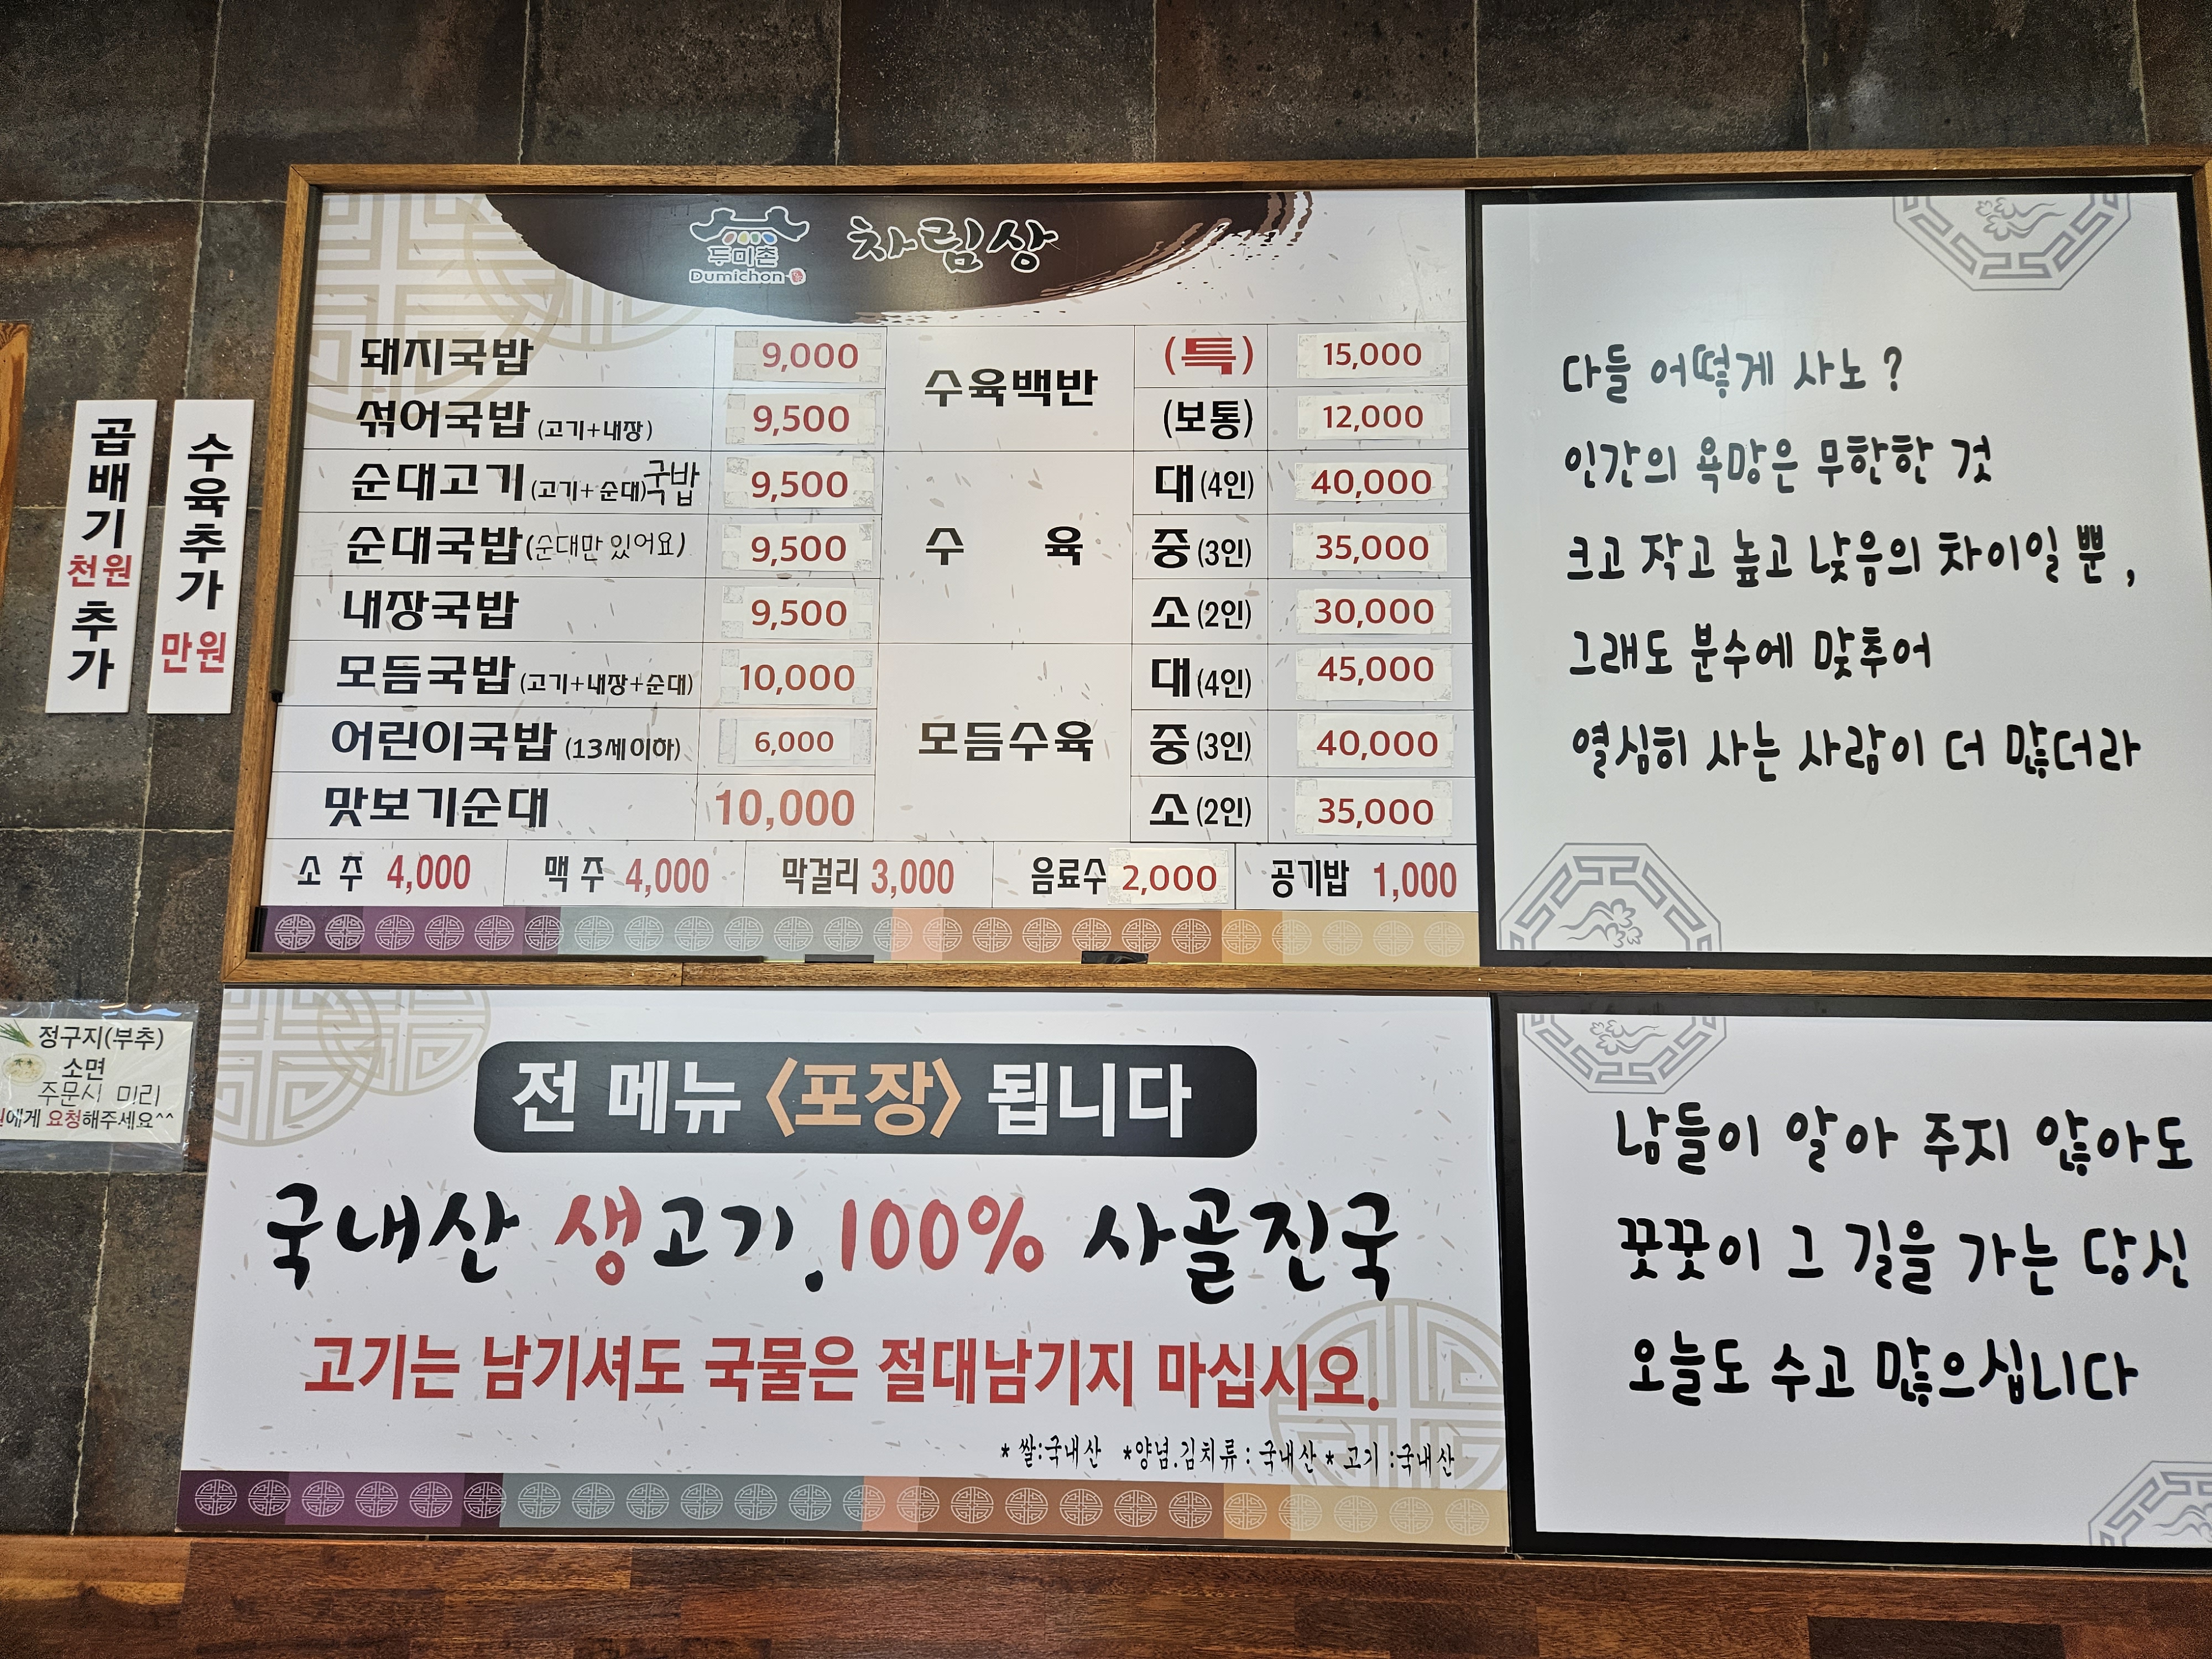 두미촌
Dumichon
차림상
돼지국밥 9,000
섞어국밥 (고기+내장) 9,500
순대고기 (고기+순대)국밥 9,500
순대국밥 (순대만 있어요) 9,500
내장국밥 9,500
모듬국밥 (고기+내장+순대) 10,000
어린이국밥 (13세이하) 6,000
맛보기순대 10,000
수육백반
(특) 15,000
(보통) 12,000
수 육
대 (4인) 40,000
중 (3인) 35,000
소 (2인) 30,000
모듬수육
대 (4인) 45,000
중 (3인) 40,000
소 (2인) 35,000
소 주 4,000 맥 주 4,000 막걸리 3,000 음료수 2,000 공기밥 1,000
곱배기 천원 추가
수육추가 만원
정구지(부추)
소면
주문시 미리
에게 요청해주세요^^
전 메뉴 <포장> 됩니다
국내산 생고기. 100% 사골진국
고기는 남기셔도 국물은 절대남기지 마십시오.
* 쌀:국내산 *양념.김치류 : 국내산 * 고기 :국내산
다들 어떻게 사노 ?
인간의 욕망은 무한한 것
크고 작고 높고 낮음의 차이일 뿐 ,
그래도 분수에 맞추어
열심히 사는 사람이 더 많더라
남들이 알아 주지 않아도
꿋꿋이 그 길을 가는 당신
오늘도 수고 많으십니다